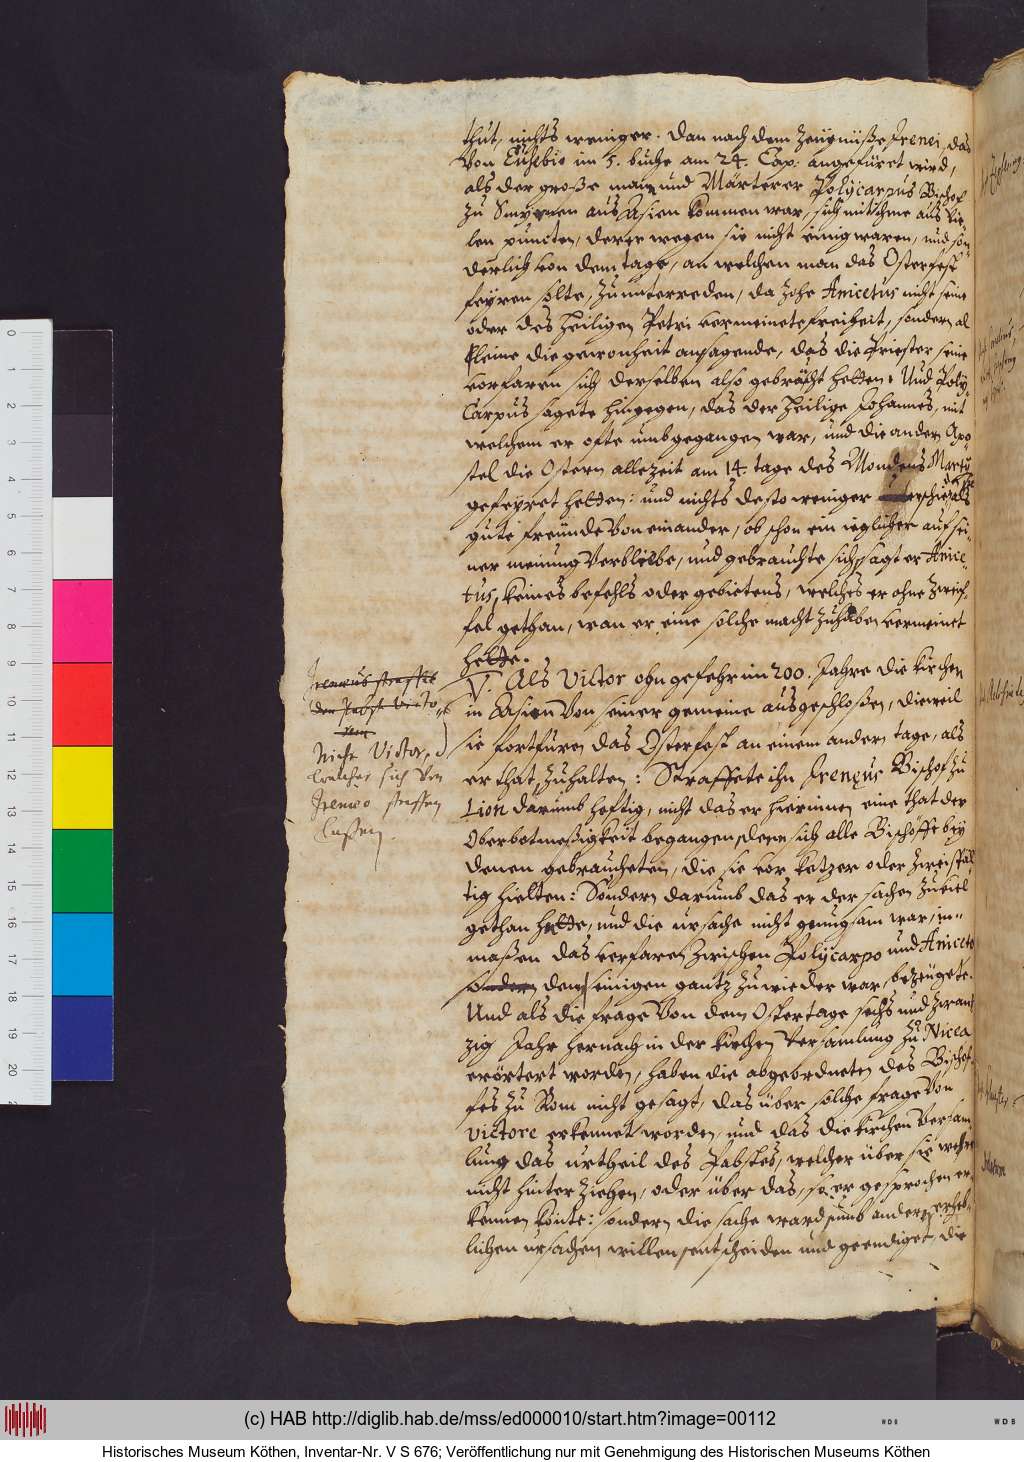 thut, nichts weniger. Dan nach dem Zeugnüße Irenei, das
Von Eusebio im 5. buche am 24. Cap. angefüret wird,
als der große man und Märterer Polycarpus Bischof
zu Smyrnen aus Asien kommen war, sich mit ihme aus vie-
len puncten, derer wegen sie nicht einig waren, und son-
derlich von dem tage, an welchen man das Osterfest
feyren solte, zu unterreden, da zohe Anicetus nicht seine
oder des Heiligen Petri vermeinete freiheit, sondern al-
kleine die gewonheit ansagende, das die Priester seine
vorfaren sich derselben also gebraucht hetten. Und Poly-
Carpus sagete hingegen, das der Heilige Johannes, mit
welchem er ofte umbgegangen war, und die andern Apo-
stel die Ostern allezeit am 14. tage des Mondens Martij
gefeyret hetten: und nichts desto weniger schieden sie als
gute freunde Von einander, ob schon ein ieglicher auf sei-
ner meinung Verbliebe, und gebrauchte sich, sagt er Anice-
tus, keines befehls oder gebietens, welches er ohne zweif-
fel gethan, wan er eine solche macht zuhaben vermeinet
hette.
V. Als Victor ohngefehr im 200. Jahre die kirchen
in Asien Von seiner gemeine ausgeschloßen, dieweil
sie fortfüren das Osterfest an einem andern tage, als
er that, zuhalten: Straffete ihn Ireneus Bischof zu
Lion darumb heftig, nicht das er hierinnen eine that der
Oberbotmeßigkeit begangen, denn sich alle Bischöffe bey
denen gebraucheten, die sie vor ketzer oder zweispäl-
tig hielten: Sondern darumb das er der sachen zuviel
gethan hette, und die ursache nicht genugsam war, in-
maßen das verfaren zwischen Polycarpo und Aniceto
sondern dem seinigen gantz zuwieder war, bezeugete.
Und als die frage Von dem Ostertage sechs und zwan-
zig Jahr hernach in der kirchen Versamlung zu Nicea
erörtert worden, haben die abgeordneten des Bischof-
fes zu Rom nicht gesagt, das über solche frage Von
Victore erkennet worden, und das die kirchen Versam-
lung das urtheil des Pabstes, welcher über sie wehre
nicht hinter ziehen, oder über das, so er gesprochen er-
kennen könte: sondern die sache ward umb anderer erheb-
lichen ursachen willen entscheiden und geendiget, die
Ireneus straffet
den Pabst Victo-
rem
Nicht Victor,
welcher sich Von
Ireneo straffen
laßen.
0
1
2
3
4
5
6
7
8
9
10
11
12
13
14
15
16
17
18
19
20
(c) HAB http://diglib.hab.de/mss/ed000010/start.htm?image=00112
WDB
WDB
Historisches Museum Köthen, Inventar-Nr. V S 676; Veröffentlichung nur mit Genehmigung des Historischen Museums Köthen